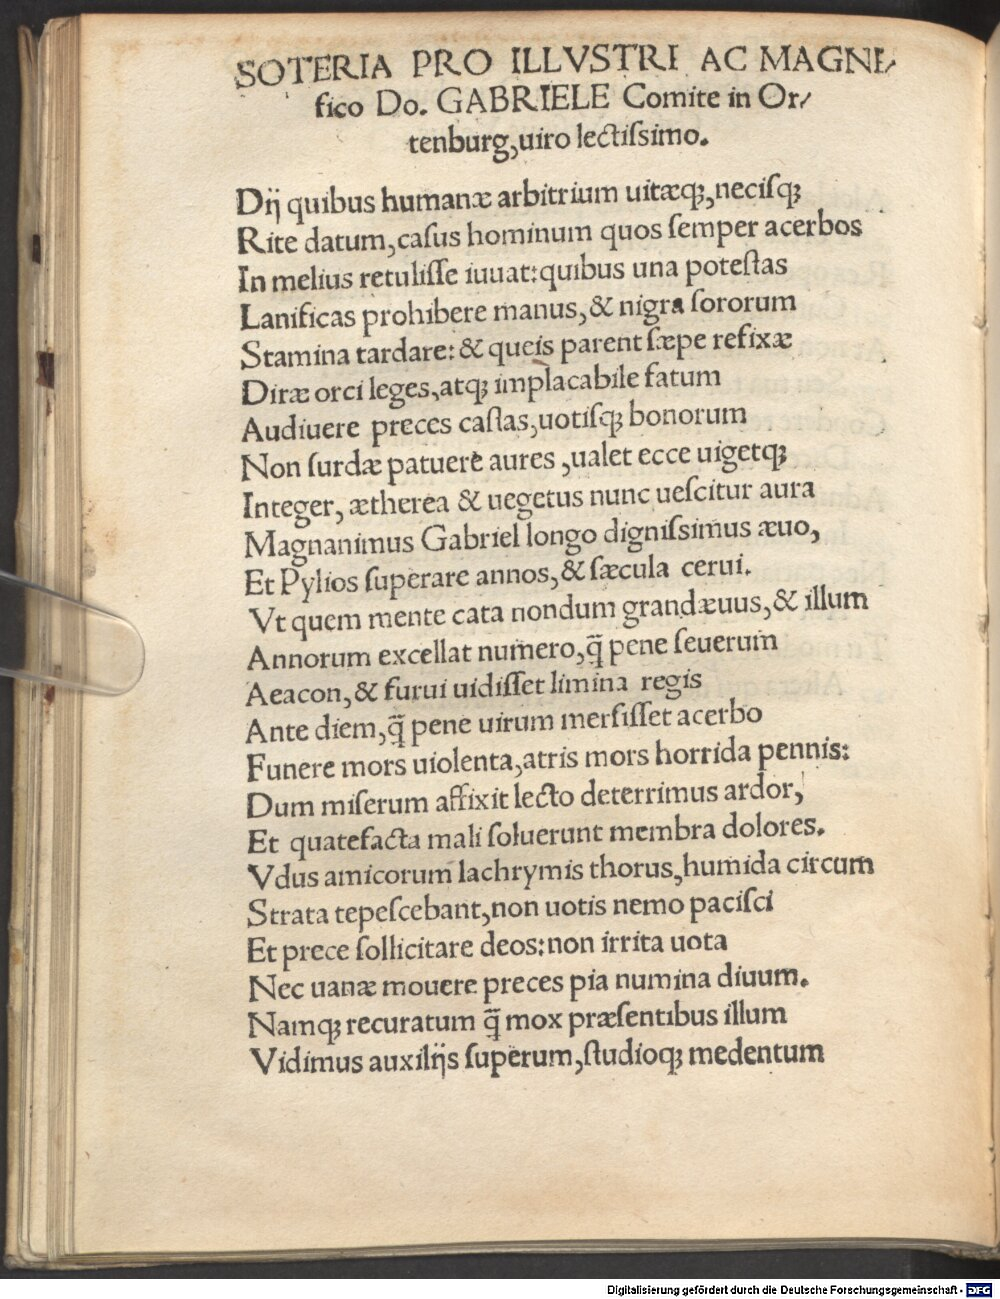 SOTERIA PRO ILLVSTRI AC MAGNI/
fico Do. GABRIELE Comite in Or/
tenburg,uiro lectiſsimo.
Dij quibus humanæ arbitrium uitæqꝫ,neciſqꝫ
Rite datum,caſus hominum quos ſemper acerbos
In melius retuliſſe iuuat:quibus una poteſtas
Lanificas prohibere manus,& nigra ſororum
Stamina tardare:& queis parent ſæpe refixæ
Diræ orci leges,atqꝫ implacabile fatum
Audiuere preces caſtas,uotiſqꝫ bonorum
Non ſurdæ patuere aures ,ualet ecce uigetqꝫ
Integer, ætherea & uegetus nunc ueſcitur aura
Magnanimus Gabriel longo digniſsimus æuo,
Et Pylios ſuperare annos,& ſæcula cerui.
Vt quem mente cata nondum grandæuus,& illum
Annorum excellat numero,q̃ pene ſeuerum
Aeacon,& furui uidiſſet limina regis
Ante diem,q̃ pene uirum merſiſſet acerbo
Funere mors uiolenta,atris mors horrida pennis:
Dum miſerum affixit lecto deterrimus ardor,
Et quatefacta mali ſoluerunt membra dolores.
Vdus amicorum lachrymis thorus,humida circum
Strata tepeſcebant,non uotis nemo paciſci
Et prece ſollicitare deos:non irrita uota
Nec uanæ mouere preces pia numina diuum.
Namqꝫ recuratum q̃ mox præſentibus illum
Vidimus auxilijs ſuperum,ſtudioqꝫ medentum
Digitalisierung gefördert durch die Deutsche Forschungsgemeinschaft - DFG